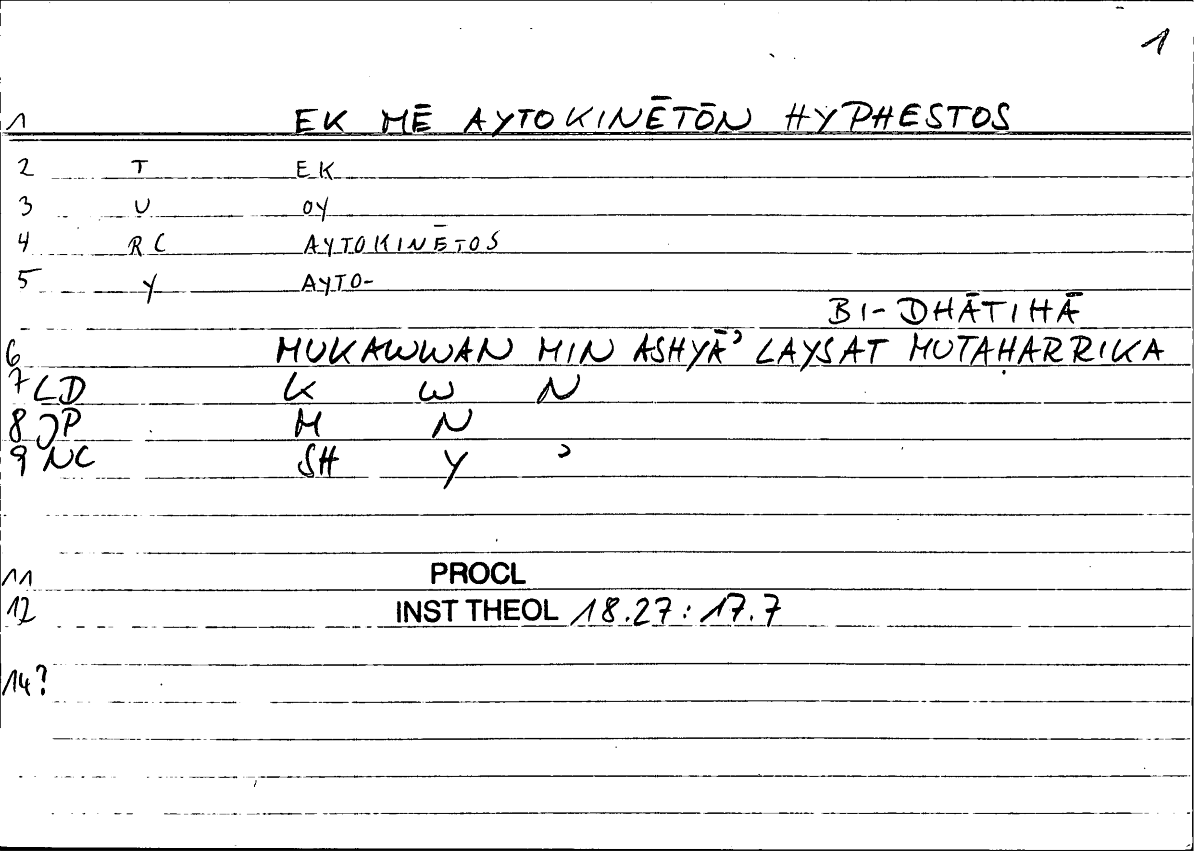 1
1 EK MĒ AYTOKINĒTŌN HYPHESTOS
2 T EK
3 U OY
4 RC AYTOKINĒTOS
5 Y AYTO-
BI-DHĀTIHĀ
6 MUKAWWAN MIN ASHYĀʾ LAYSAT MUTAḤARRIKA
7 LD K W N
8 JP M N
9 NC SH Y ʾ
11 PROCL
12 INST THEOL 18.27:17.7
14?